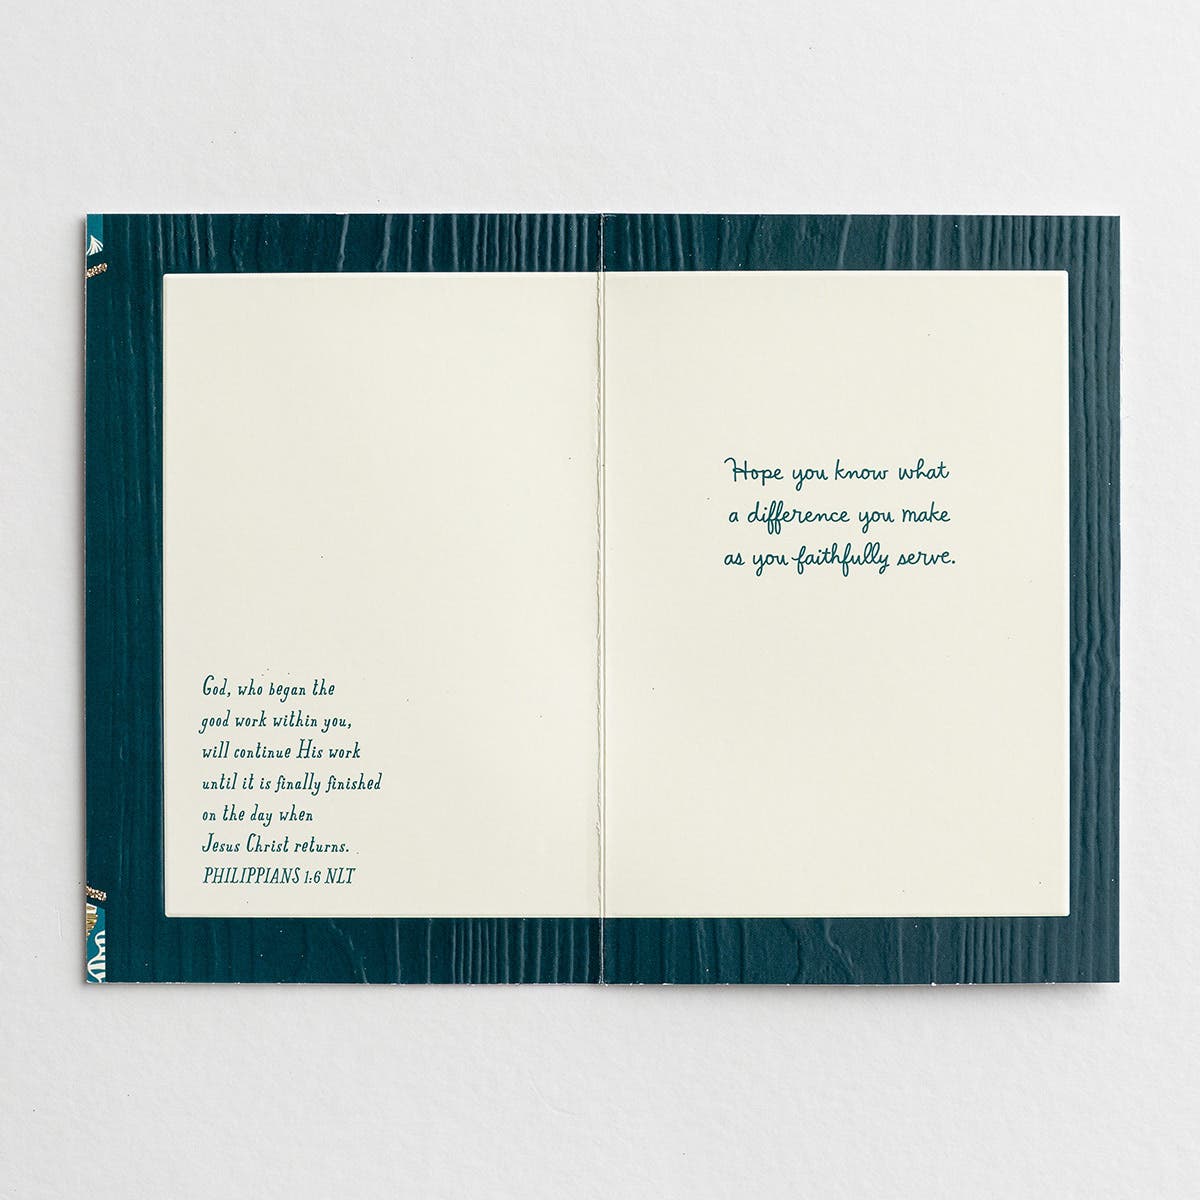 God, who began the
good work within you,
will continue His work
until it is finally finished
on the day when
Jesus Christ returns.
PHILIPPIANS 1:6 NLT
Hope you know what
a difference you make
as you faithfully serve.